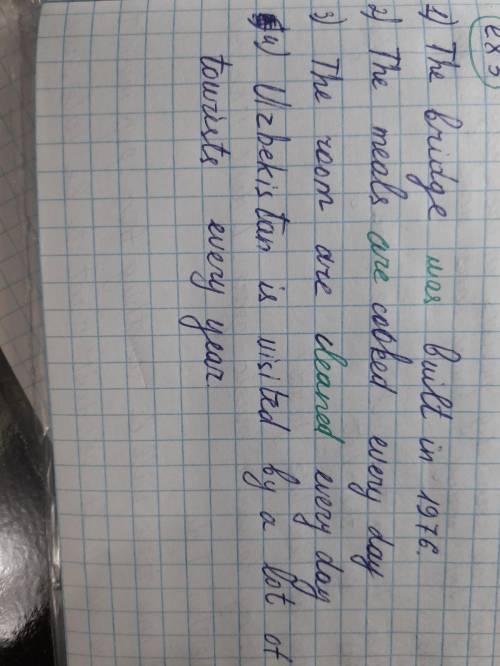 ex 5
1) The bridge was built in 1976.
2) The meals are cooked every day
3) The room are cleaned every day
4) Uzbekistan is visited by a lot of
tourists every year.